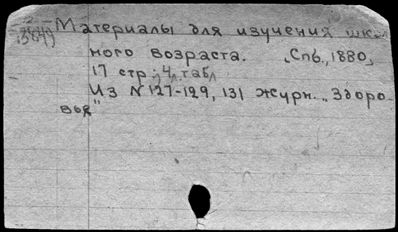 Материалы для изучения шко
ного возраста. „Спб., 1880,
17 стр., 4 л. табл
Из N 127-129, 131 журн. „Здоро
вья"